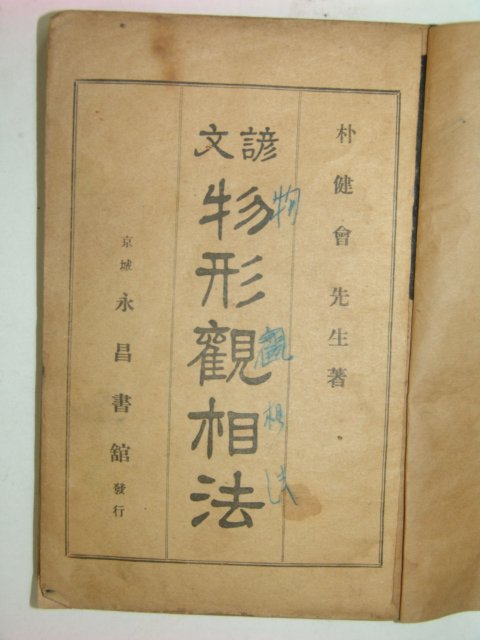 朴健會 先生著
諺文
物形觀相法
物
觀相法
京城 永昌書舘 發行